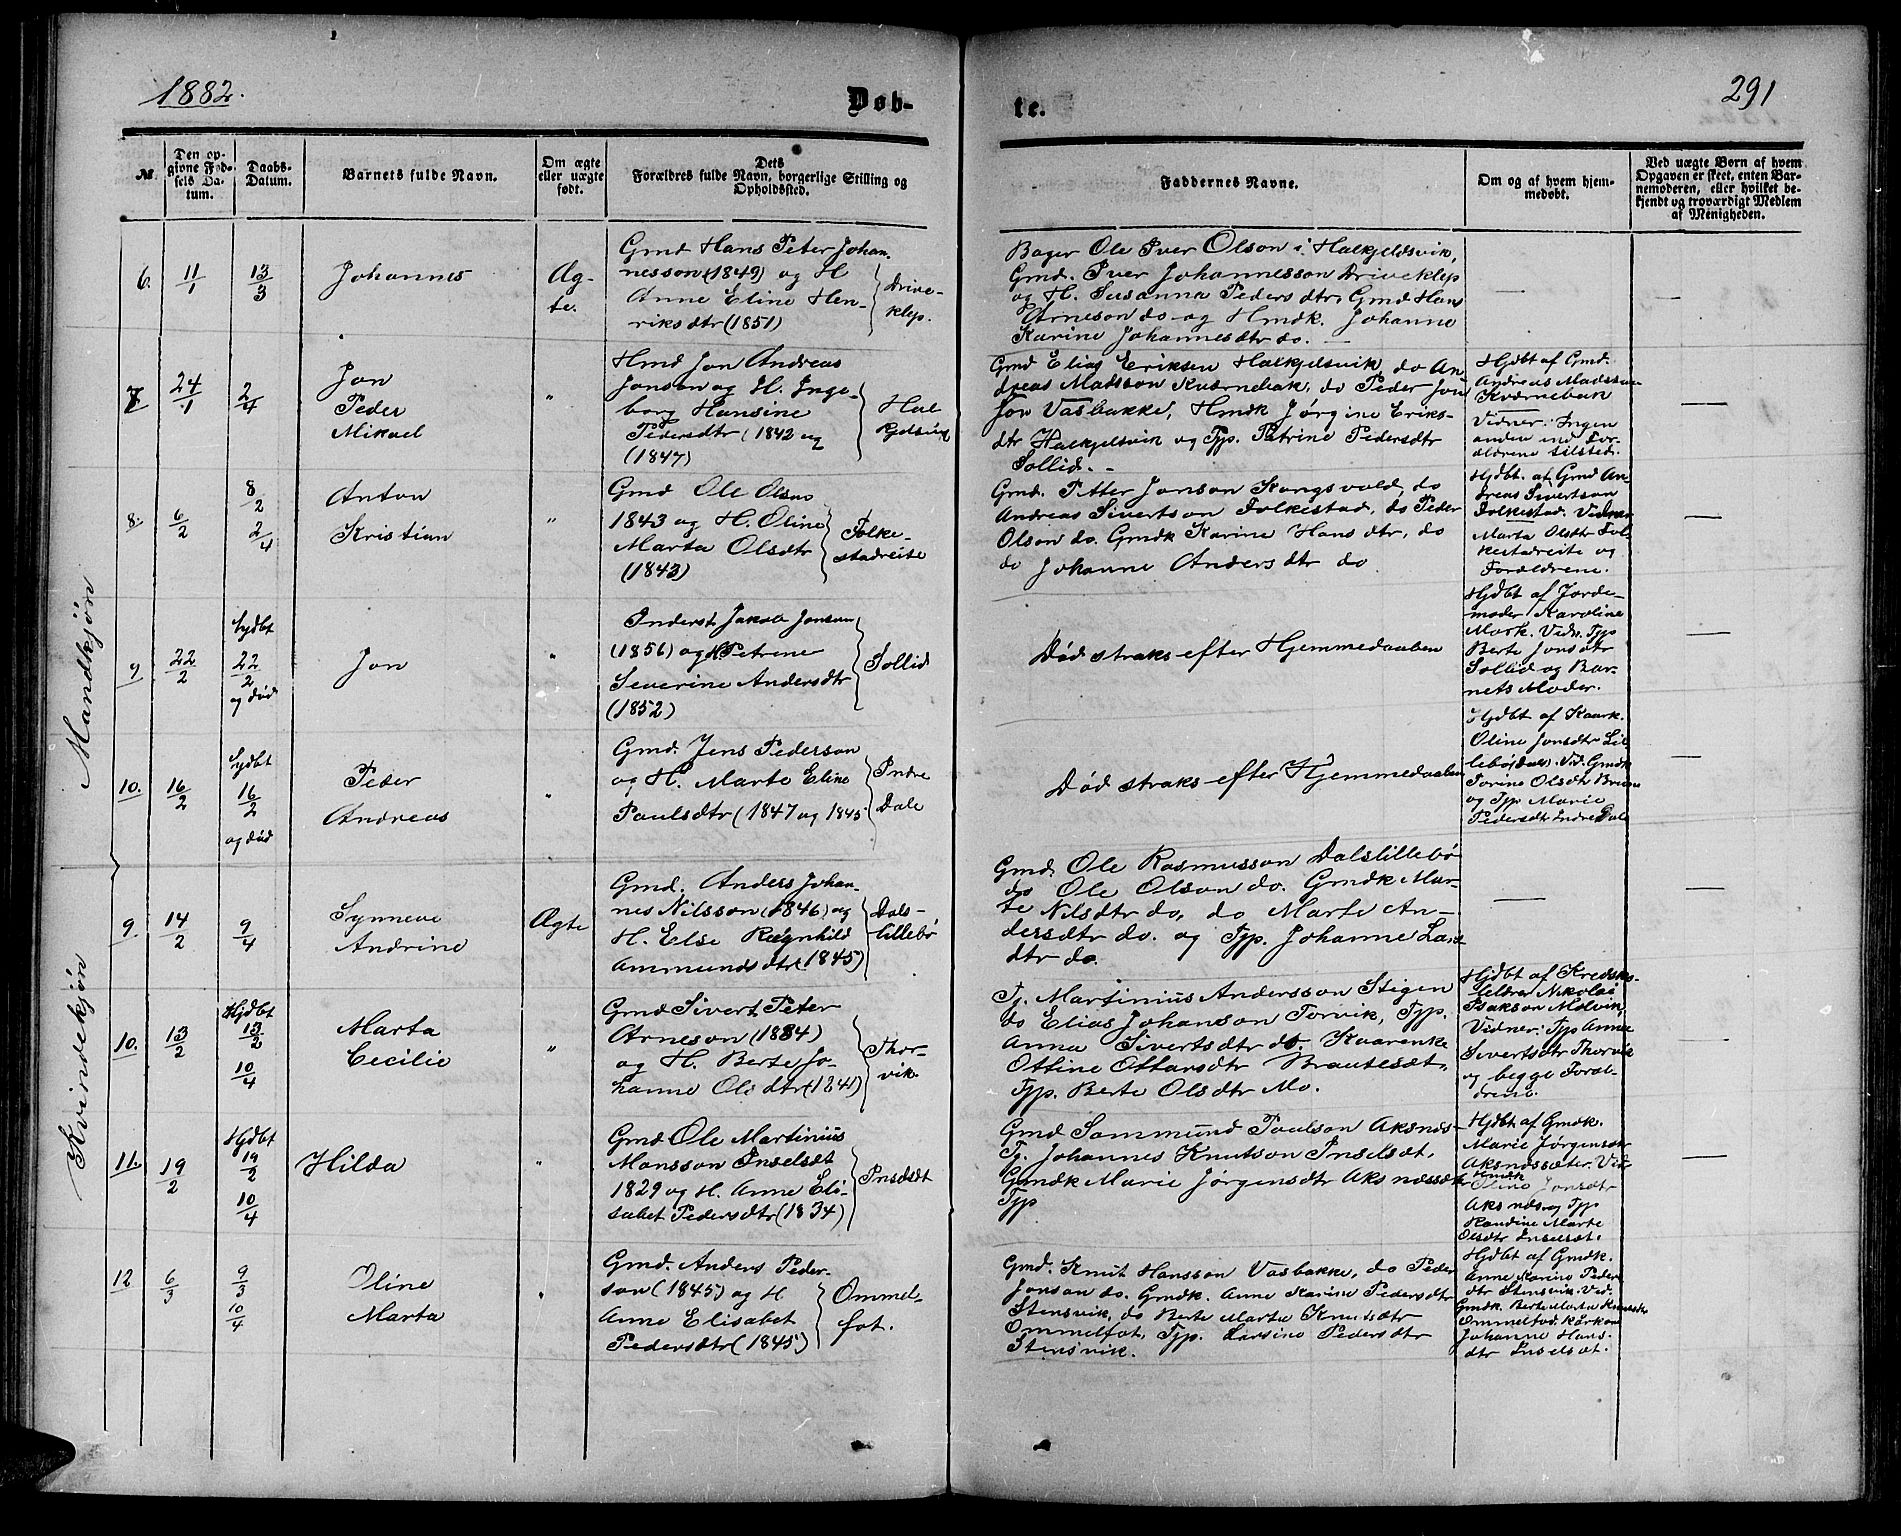 1882.
291
Døb-
te.
№
Den op-
givne Fød-
sels Da-
tum.
Daabs-
Datum.
Barnets fulde Navn.
Om ægte
eller uægte
født.
Dets
Forældres fulde Navn, borgerlige Stilling og
Opholdssted.
Faddernes Navne.
Om og af hvem hjem-
medøbt.
Ved uægte Børn af hvem
Opgaven er skeet, enten Bar-
nemoderen, eller hvilket be-
kjendt og troværdigt Medlem
af Menigheden.
Mandkjøn
6. 11/1 13/3 Johannes Æg-
te.
Gmd Hans Peter Johan-
nesson (1849) og H
Anne Eline Hen-
riksdtr (1851)
Drive-
klep.
Bager Ole Iver Olson i Halkjeldsvik,
Gmd. Iver Johannesson Driveklep
og H. Susanna Pedersdtr, Gmd Hans
Arneson do og Hmdk. Johanne
Karine Johannesdtr do. —
7 24/1 2/4 Jon
Peder
Mikael
"
Hmd Jon Andreas
Jonson og H. Inge-
borg Hansine
Pedersdtr (1842 og
(1847)
Hal
Gmd Elias Eriksen Halkjelsvik, do An
dreas Madsson Kværnebak, do Peder Jon
Jon Vasbakke, Hmdk Jørgine Eriks-
dtr Halkjelsvik og Tjp. Petrine Pedersdtr
Sollid. -
Hjdbt af Gmd.
Andreas Madsson
Kværnebak
Vidner: Ingen
anden end For-
ældrene tilsted.
8. 6/2 8/2 2/4 Anton
Kristian
"
Gmd Ole Olson
1843 og H. Oline
Marta Olsdtr
(1843)
Folke-
stadreite
Gmd. Petter Jonson Kongsvold, do
Andreas Sivertson Folkestad, do Peder
Olson do. Gmdk Karine Hansdtr, do
do Johanne Andersdtr do
Hjdbt. af Gmd An-
dreas Sivertson
Folkestad. Vidner
Marta Olsdtr Fol-
kestadreite og
Forældrene.
9 22/2 Hjdbt
22/2
og død
Jon
"
Inderst Jakob Jonson
(1856) og H Petrine
Severine Andersdtr
(1852)
Sollid
Død straks efter Hjemmedaaben
Hjdbt af Jorde-
moder Karoline
Mork. Vidn. Tjp
Berte Jonsdtr
Sollid og Bar-
nets Moder.
10. 16/2 Hjdbt
16/2
og død
Peder
Andreas
"
Gmd. Jens Pederson
og H. Marte Eline
Paulsdtr (1847 og 1845
Indre
Dale
Død straks efter Hjemmedaaben
Hjdbt af Kaark.
Oline Jonsdtr Lil-
lebø, Dal. Vid. Gmdk
Torine Olsdtr Bruns
og Tjp Marie
Pedersdtr Indre Dale
Kvindekjøn
9. 14/2 9/4 Synneve
Andrine
Ægte
Gmd. Anders Johan-
nes Nilsson (1846) og
H. Else Ragnhild
Ammundsdtr (1845)
Dals-
lillebø
Gmd. Ole Rasmusson Dalslillebø
do Ole Olson do. Gmdk Mar-
te Nilsdtr do, do Marte An-
dersdtr do. og Tjp. Johanne Lars-
dtr do.
10. 13/2 Hjdbt
13/2
10/4
Marta
Cecilie
"
Gmd Sivert Peter
Arneson (1834)
og H. Berte Jo-
hanne Olsdtr (1841)
Thor-
vik.
Tj. Martinius Andersson Stigen
do Elias Johanson Torvik, Tjp.
Anna Sivertsdtr do. Kaarenke
Ottine Ottarsdtr Brautesæt,
Tjp. Berte Olsdtr Mo.
Hjdbt af Kreds-
lærer Nikolai
Isakson Molvik,
Vidner: Tjp Anna
Sivertsdtr Thorvik
og begge Foræl-
drene.
11. 19/2 Hjdbt
19/2
10/4
Hilda
"
Gmd Ole Martinius
Monsson Inselsæt
1829 og H. Anne Eli-
sabet Pedersdtr (1834)
Inselsæt
Gmd Sammund Paulson Aksnæs-
Tj. Johannes Knutson Inselsæt,
Gmdk Marie Jørgensdtr Aksnæssæter
Tjp
Hjdbt af Gmdk.
Marie Jørgensdtr
Aksnæssæter. Vid.
Hmdk
Oline Jonsdtr
Aksnæs og Tjp
Randine Marte
Olsdtr Inselsæt.
12 6/3 9/3 10/4 Oline
Marta
"
Gmd. Anders Peder-
son (1845) og H
Anne Elisabet
Pedersdtr (1845)
Ommel-
fot.
Gmd. Knut Hansson Vasbakke, do Peder
Jonson do. Gmdk. Anne Karine Pedersdtr
Stensvik, do Berte Marta Knutsdtr
Ommelfot, Tjp. Larsine Pedersdtr
Stensvik.
Hjdbt af Gmdk.
Anne Karine Peders
dtr Stensvik. Vid.
Gmdk. Berte Marta Knutsdtr
Ommelfot. Kårkon
Johanne Hans-
dtr Inselsæt.